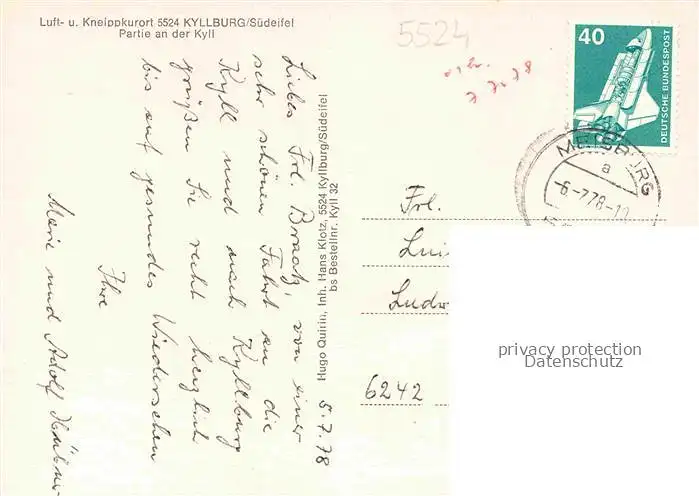 Luft- u. Kneippkurort 5524 KYLLBURG/Südeifel
Partie an der Kyll
5524
7.7.78
40
DEUTSCHE BUNDESPOST
MEERSBURG
a
-6.-7.78-1
Liebes Frl. Braatz, von einer
sehr schönen Fahrt an die
Kyll und nach Kyllburg
grüßen Sie recht herzlich
bis auf gesundes Wiedersehen
Ihre
Marie und Adolf Hübner
5.7.78
Hugo Quirin, Inh. Hans Klotz, 5524 Kyllburg/Südeifel
bs Bestellnr. Kyll 32
Frl.
Luis
Ludw
6242
privacy protection
Datenschutz